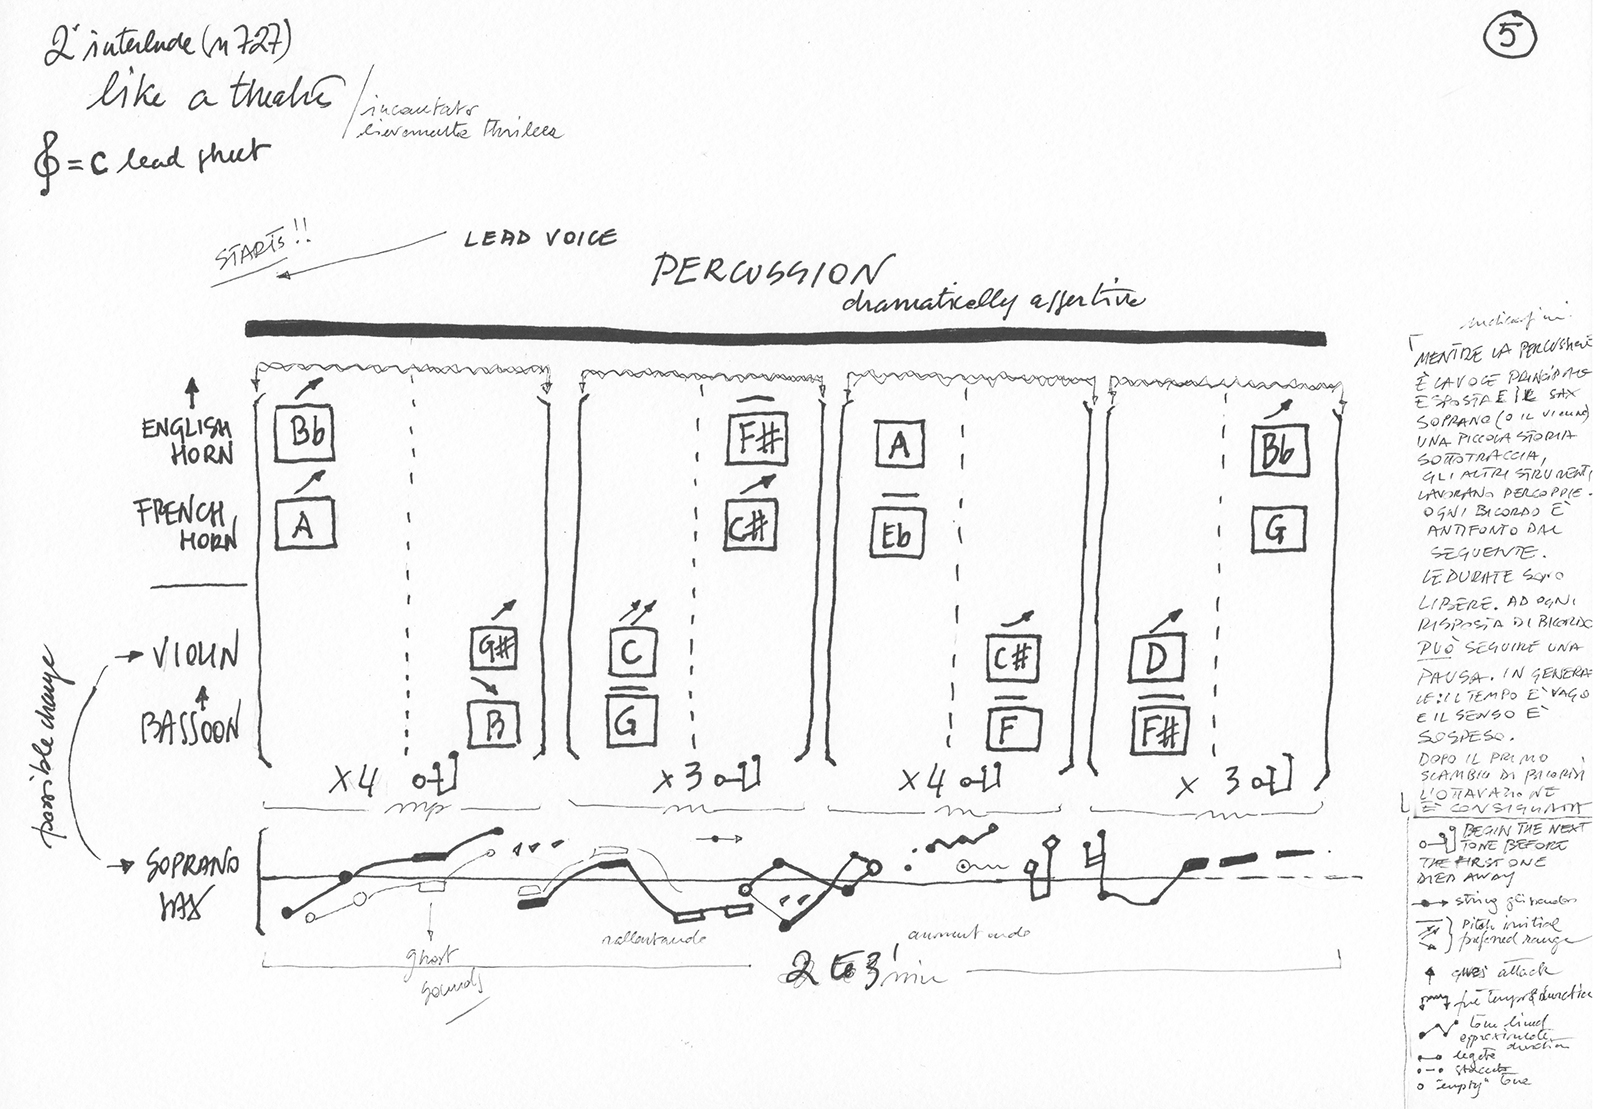 5
2° interlude (n 727)
like a theatre
= C lead sheet
STARTS!!
LEAD VOICE
PERCUSSION
dramatically assertive
ENGLISH
HORN
Bb
F#
A
Bb
FRENCH
HORN
A
C#
Eb
G
VIOLIN
G#
C
C#
D
BASSOON
B
G
F
F#
possible change
x4
x3
x4
x3
mp
SOPRANO
SAX
ghost
sounds
rallentando
aumentando
2 to 3' min
MENTRE LA PERCUSSIONE
È LA VOCE PRINCIPALE
ESPOSTA E IL SAX
SOPRANO (O IL VIOLINO)
UNA PICCOLA STORIA
SOTTOTRACCIA,
GLI ALTRI STRUMENTI
LAVORANO PER COPPIE.
OGNI BICORDO È
ANTIFONTO DAL
SEGUENTE.
LE DURATE SONO
LIBERE. AD OGNI
RISPOSTA DI BICORDO
PUÒ SEGUIRE UNA
PAUSA. IN GENERA
LE: IL TEMPO E' VAGO
E IL SENSO E'
SOSPESO.
DOPO IL PRIMO
SCAMBIO DI BICORDI
L'OTTAVAZIONE
E' CONSIGLIATA
BEGIN THE NEXT
TONE BEFORE
THE FIRST ONE
DIED AWAY
string
Pitch initial
preferred range
gives attack
tempo & duration
tone lined
approximate
duration
legato
staccato
"empty" tone